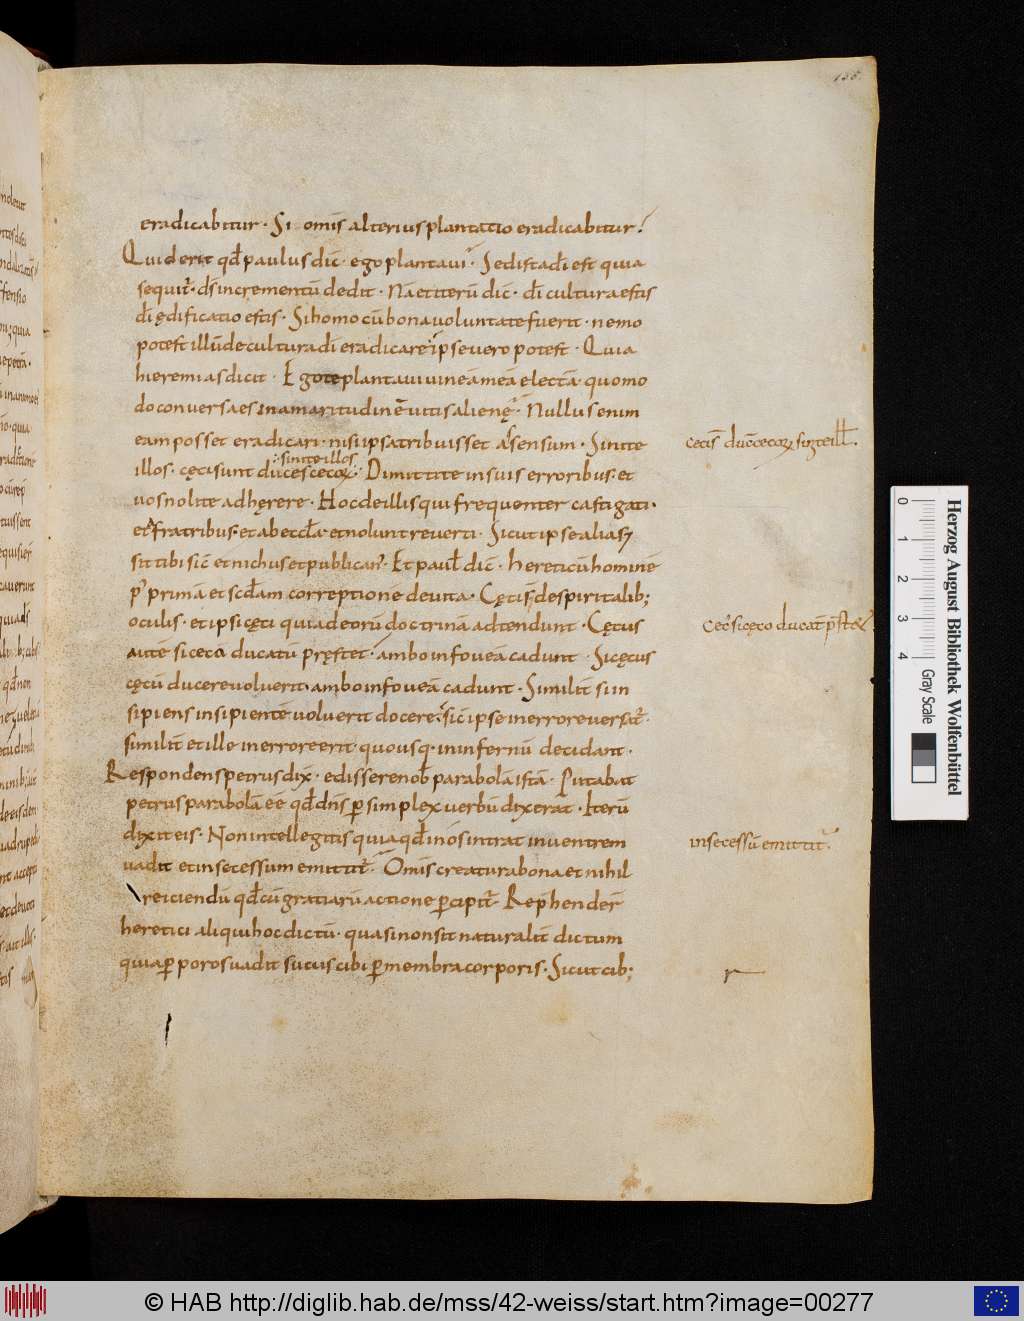 135.
eradicabitur · Si omīs alterius plantatio eradicabitur?
Quid erit qđ paulus dic̄ · ego plantavi · Sed istađi est quia
sequit̄ · d̄s incrementū dedit · Nā et iterū dic̄ · đi cultura estis
đi ędificatio estis · Si homo cū bona voluntate fuerit · nemo
potest illū de cultura đi eradicare · ipse vero potest · Quia
hieremias dicit · Ego te plantavi vineā meā electā · quomo
do conversa es in amaritudinē vitis alienę · Nullus enim
eam posset eradicari · nisi ipsa tribuisset assensum · Sinite
sinite illos
illos · cęci sunt duces cecoꝝ · Dimittite in suis erroribus · et
vos nolite adhęrere · Hoc de illis qui frequenter castigati ·
et a fratribus · et ab eccła · et nolunt reverti · Sicut ipse alias
sit tibi sic̄ et nichus et publican' · Et pauł dic̄ · hereticū hominē
p' primā et scđam correptionē devita · Cęci s̄ de spiritalib;
oculis · et ipsi cęci qui adeorū doctrinā adtendunt · Cęcus
autē si ceco ducatū pręstet · ambo in foveā cadunt · Si cęcus
cęcū ducere voluerit · ambo in foveā cadunt · Similit̄ si in
sipiens insipientē voluerit docere · sic̄ ipse in errore versat̄ ·
similit̄ et ille in errore erit · quousq · in infernū decidant ·
Respondens petrus dix̄ · edissere nob̄ parabolā istā · Putabat
petrus parabolā eē qđ dn̄s ꝑ simplex verbū dixerat · Iterū
dixit eis · Non intellegitis quia qđ in os intrat in ventrem
vadit et in secessum emittit̄ · Omīs creatura bona et nihil
reiciendū qđ cū gratiarū actione ꝑcipit̄ · Rep̄hender̄
heretici aliqui hoc dictū · quasi non sit naturalit̄ dictum
quia ꝑ poros vadit sucus cibi ꝑ membra corporis · Sicut cib;
in secessū emittit̄ ·
r
Herzog August Bibliothek Wolfenbüttel
0 1 2 3 4 Gray Scale
© HAB http://diglib.hab.de/mss/42-weiss/start.htm?image=00277